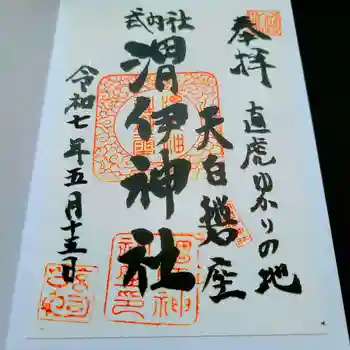 奉拝
直虎ゆかりの地
天白磐座
式内社
渭伊神社
令和七年五月十五日